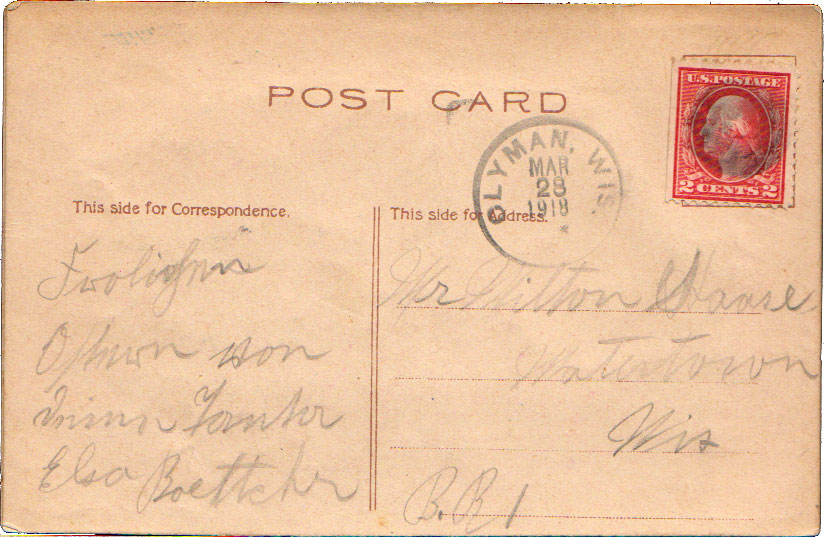 POST CARD
U.S. POSTAGE
2 CENTS 2
CLYMAN, WIS.
MAR
28
1918
This side for Correspondence.
This side for Address.
Frolichen
Ostern von
deiner Tante
Elsa Boettcher
Mr Milton Haase
Watertown
Wis
R.R 1